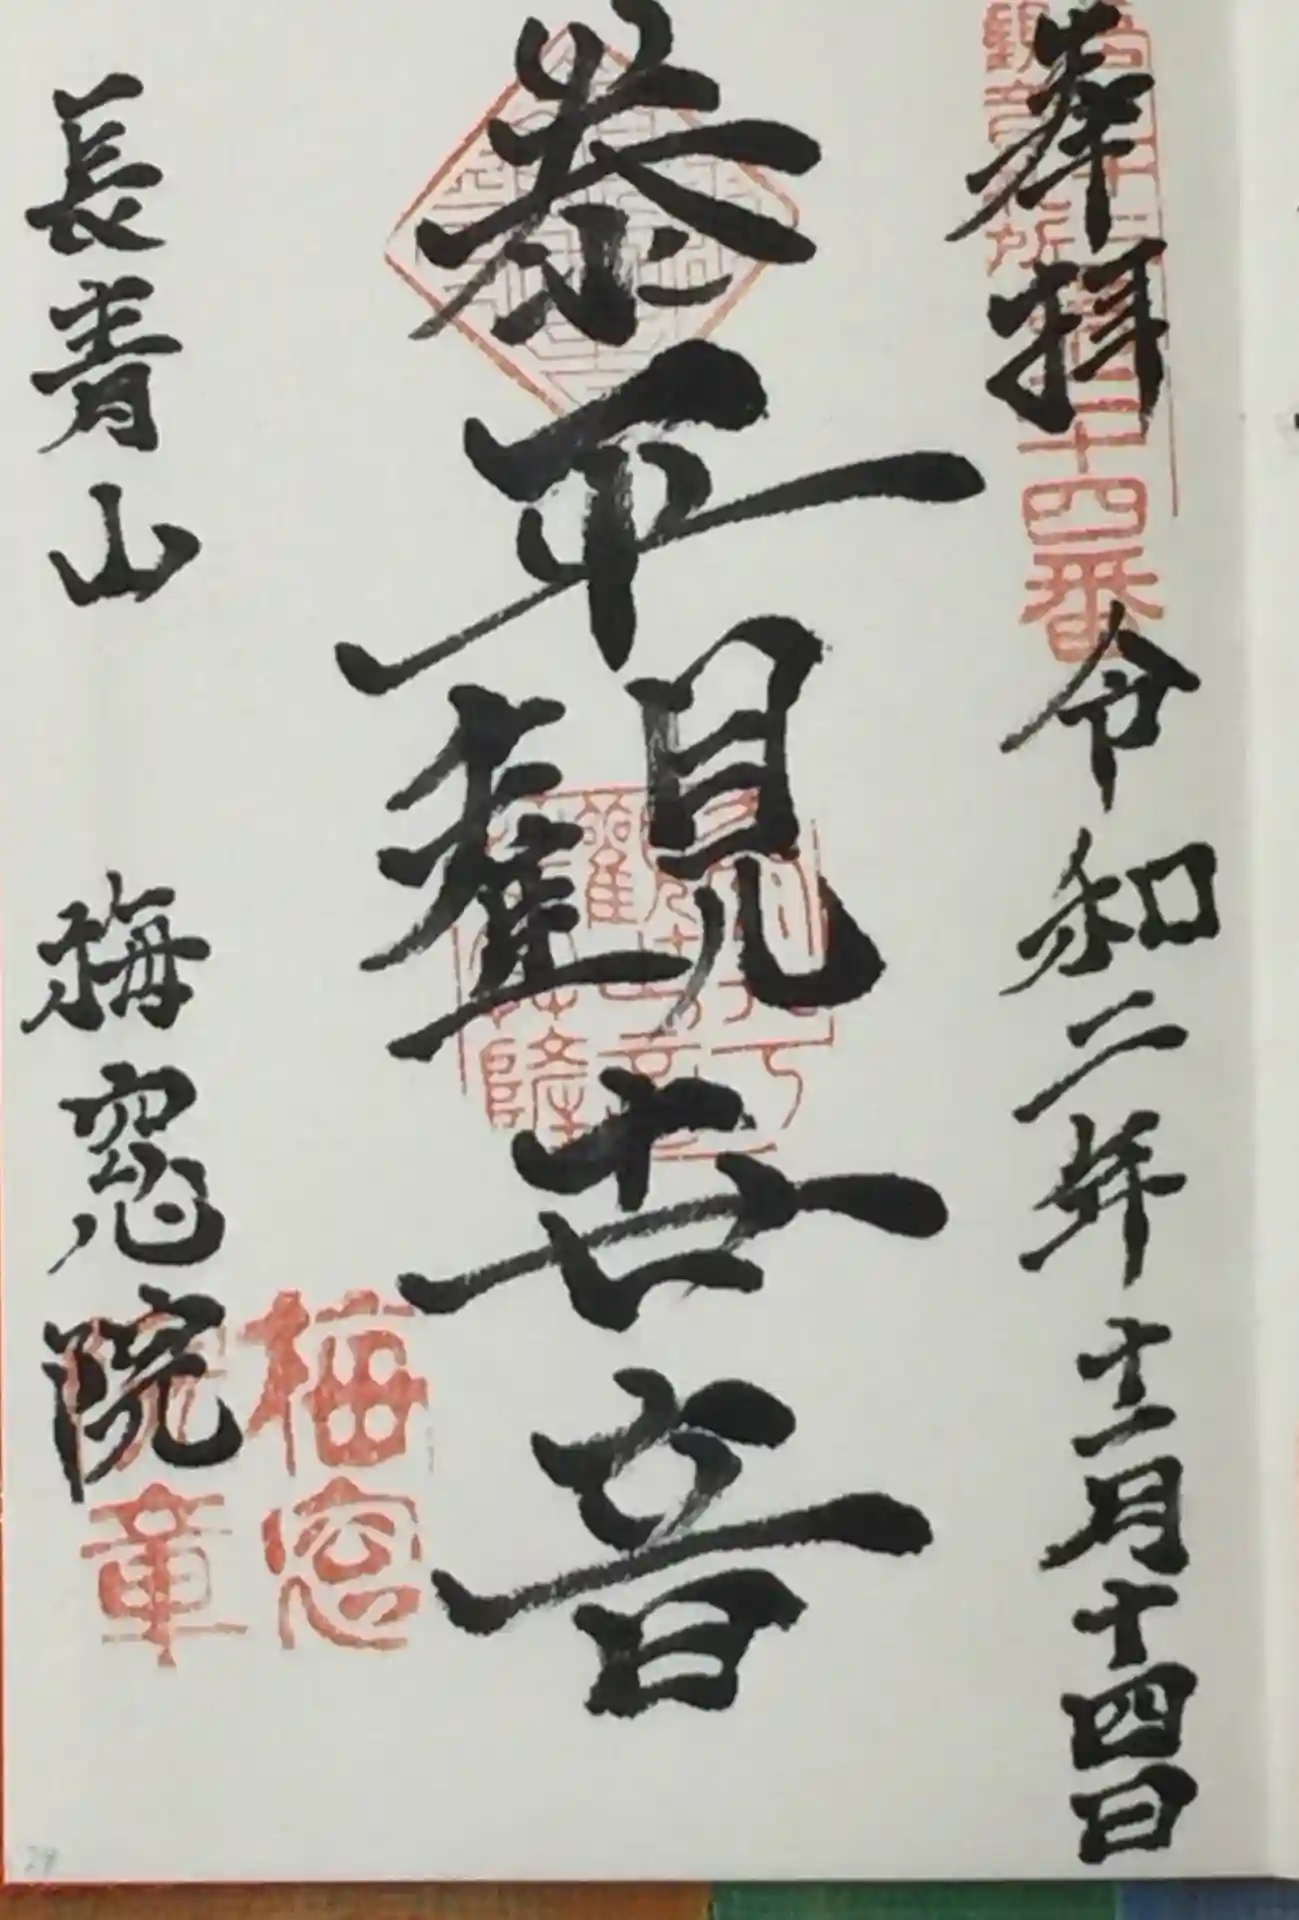 奉拝
二十四番
令和二年十二月十四日
泰平観世音
長青山
梅窓院
梅窓
院章
24